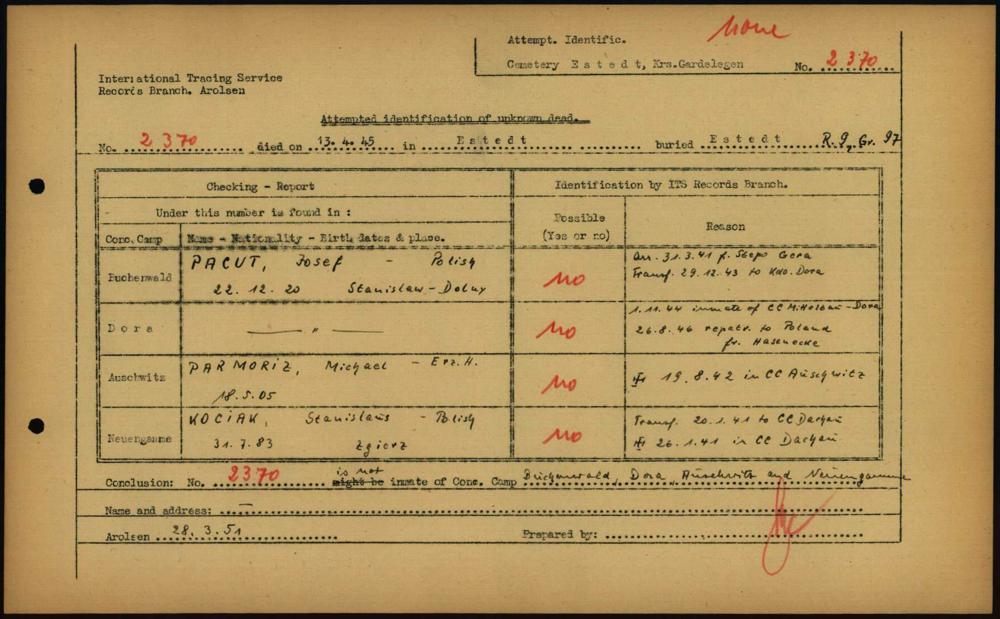 None
Attempt. Identific.
Cemetery E s t e d t, Krs.Gardelegen No. 2 370
International Tracing Service
Records Branch. Arolsen
Attempted identification of unknown dead.
No. 2 370 died on 13.4.45 in E s t e d t buried E s t e d t R. 9, Gr. 97
Checking - Report
Identification by ITS Records Branch.
Under this number is found in :
Possible
(Yes or no)
Reason
Conc. Camp
Name - Nationality - Birth dates & place.
Buchenwald
PACUT, Josef - Polish
22.12.20 Stanislaw-Dolny
no
Arr. 31.3.41 f. Stapo Gera
Transf. 29.12.43 to Kdo. Dora
D o r a
— " —
no
1.11.44 inmate of CC M.Helbau-Dora
26.8.46 repatr. to Poland
fr. Hasenecke
Auschwitz
PARMORIZ, Michael - Erz.H.
18.5.05
no
19.8.42 in CC Auschwitz
Neuengamme
KOCIAK, Stanislaus - Polish
31.7.83 Zgierz
no
Transf. 20.1.41 to CC Dachau
26.1.41 in CC Dachau
Conclusion: No. 2370 is not might be inmate of Conc. Camp Buchenwald, Dora, Auschwitz and Neuengamme
Name and address: —
Arolsen 28.3.51 Prepared by: